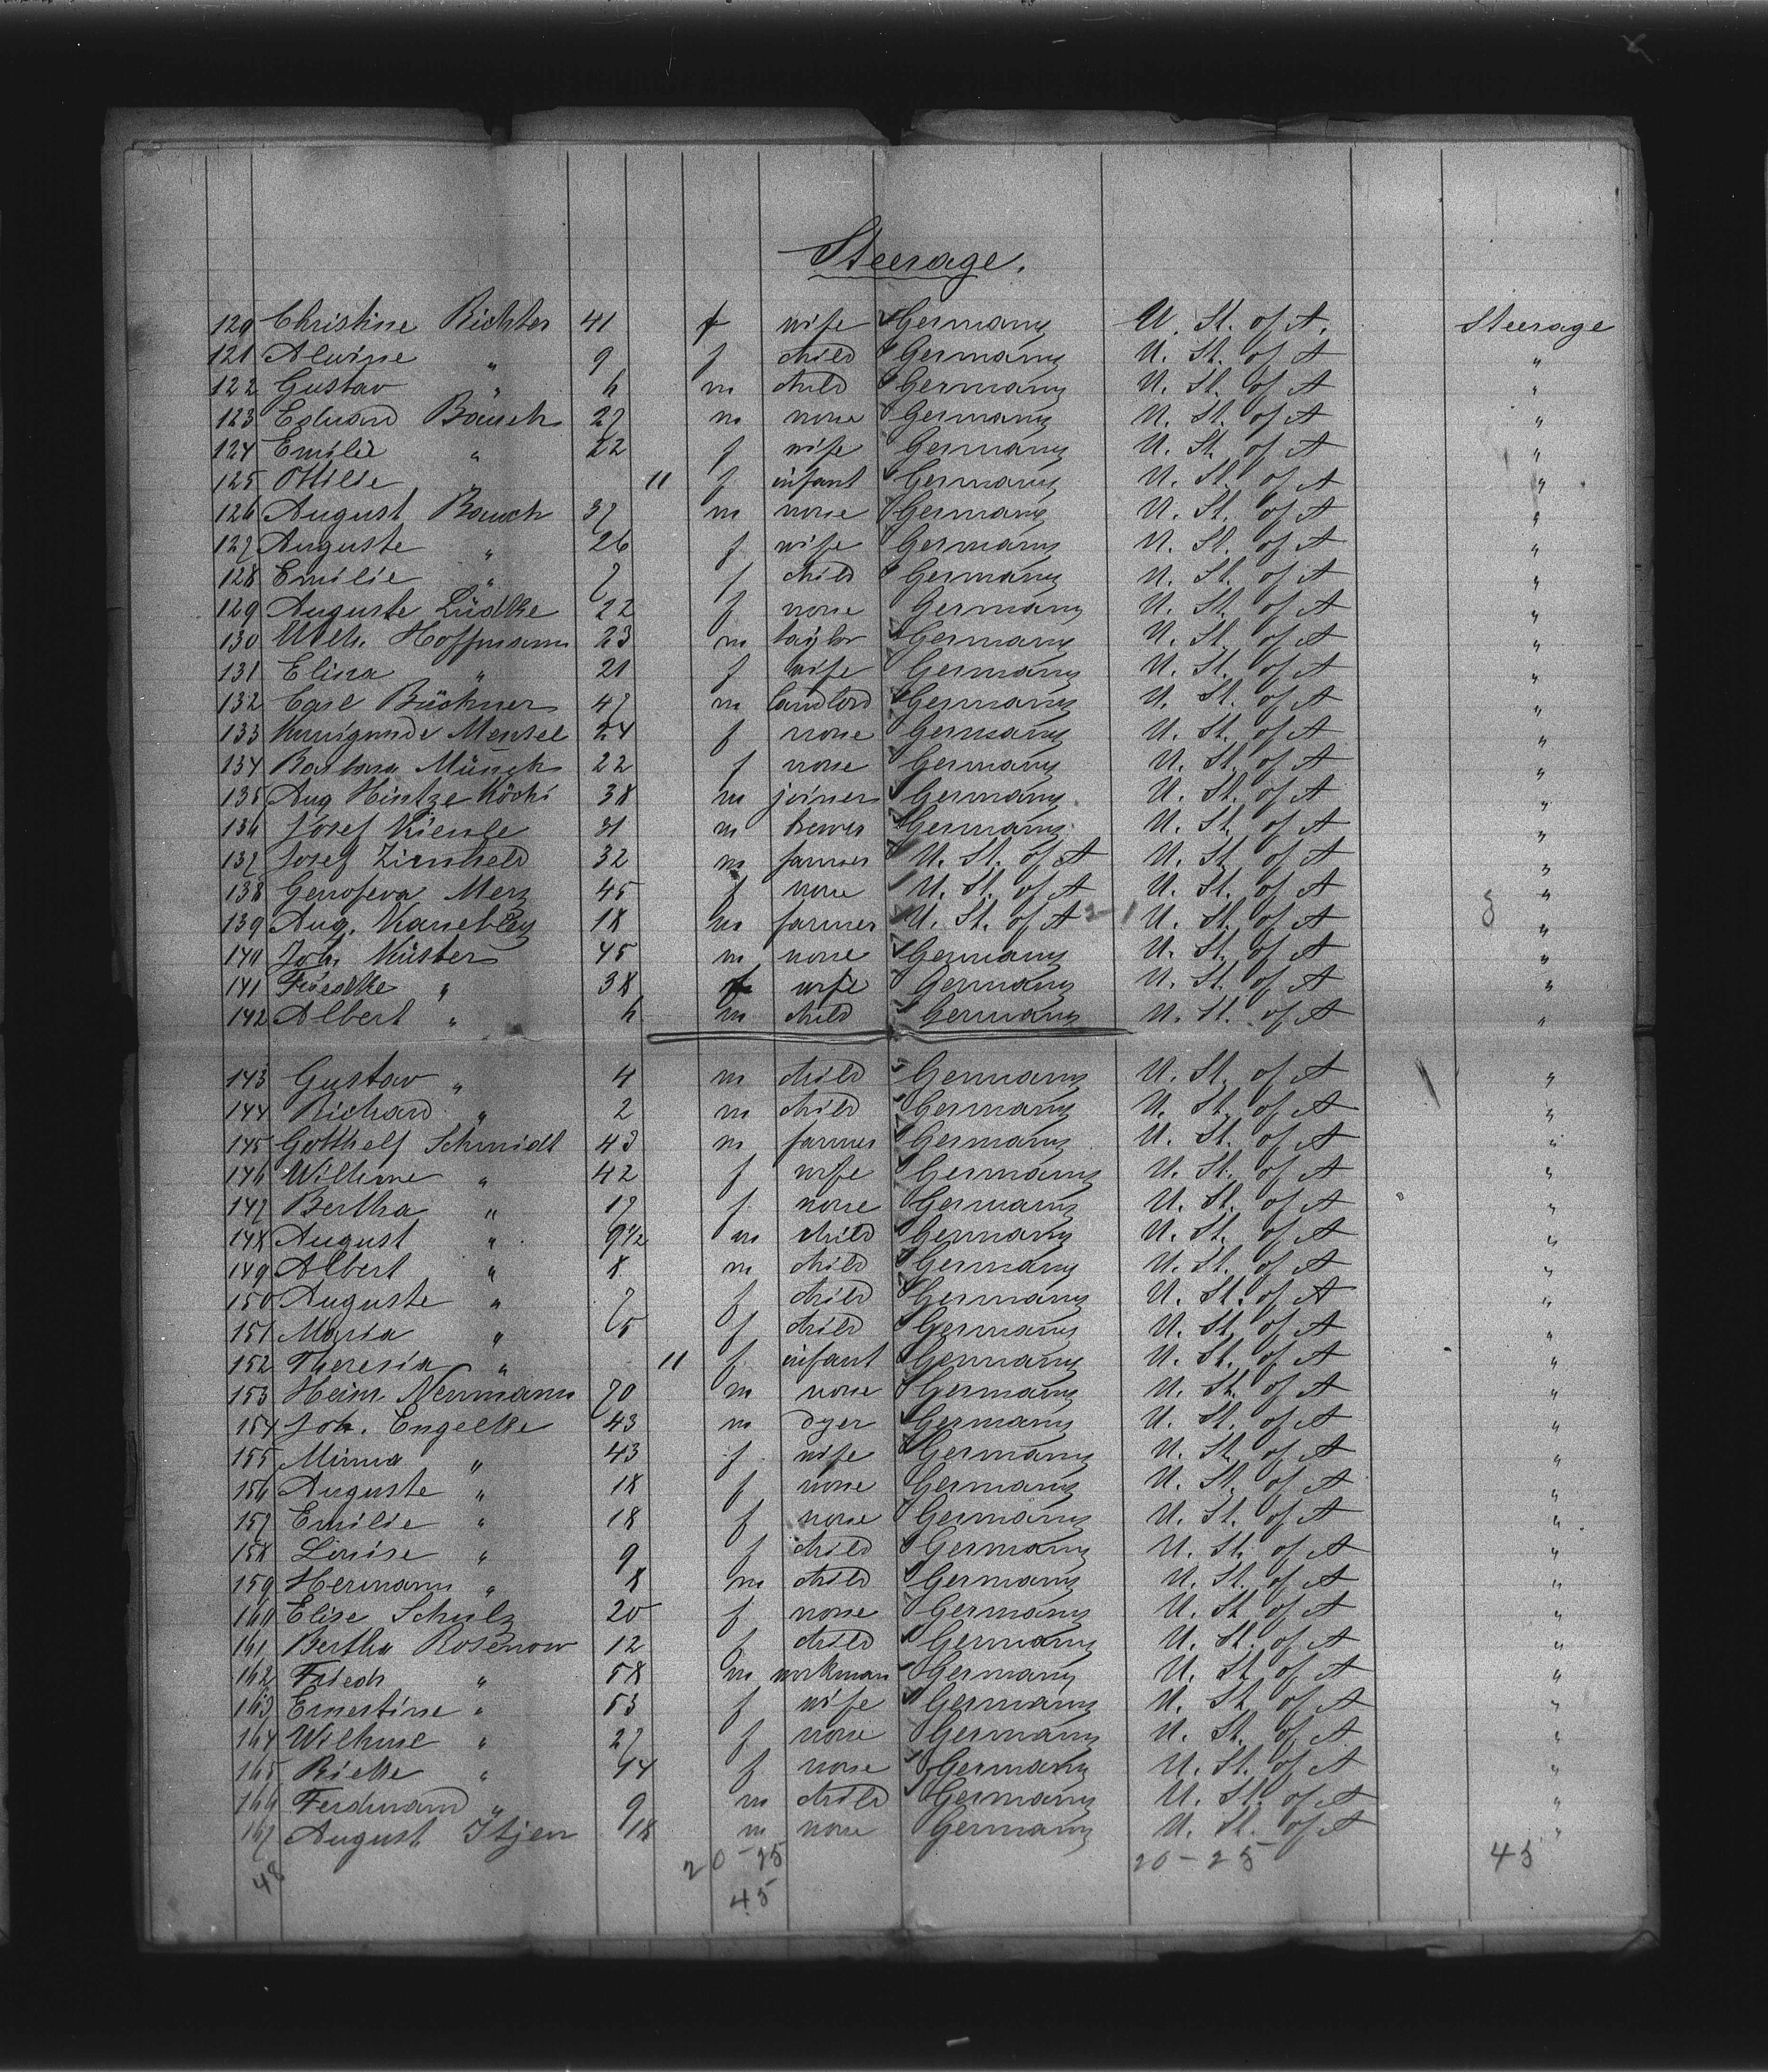 Steerage.
120 Christine Richter 41 f wife Germany U. St. of A. Steerage
121 Alwine " 9 f child Germany U. St. of A "
122 Gustav " 6 m child Germany U. St. of A "
123 Eduard Bauch 27 m none Germany U. St. of A "
124 Emilie " 22 f wife Germany U. St. of A "
125 Ottilie " 11 f infant Germany U. St. of A "
126 August Bauch 37 m none Germany U. St. of A "
127 Auguste " 26 f wife Germany U. St. of A "
128 Emilie " 7 f child Germany U. St. of A "
129 Auguste Lüdtke 22 f none Germany U. St. of A "
130 Wilh. Hoffmann 23 m taylor Germany U. St. of A "
131 Elisa " 21 f wife Germany U. St. of A "
132 Carl Büchner 47 m landlord Germany U. St. of A "
133 Kunigunde Mensel 24 f none Germany U. St. of A "
134 Barbara Münch 22 f none Germany U. St. of A "
135 Aug Hintze 38 m joiner Germany U. St. of A "
136 Josef Kienle 31 m brewer Germany U. St. of A "
137 Josef Zirnheld 32 m farmer U. St. of A U. St. of A "
138 Genofeva Merz 45 f none U. St. of A U. St. of A "
139 Aug. 18 m farmer U. St. of A U. St. of A "
140 Joh. Küster 45 m none Germany U. St. of A "
141 Friedke " 38 f wife Germany U. St. of A "
142 Albert " 6 m child Germany U. St. of A "
143 Gustav " 4 m child Germany U. St. of A "
144 Richard " 2 m child Germany U. St. of A "
145 Gotthelf Schmidt 43 m farmer Germany U. St. of A "
146 Wilhme " 42 f wife Germany U. St. of A "
147 Bertha " 17 f none Germany U. St. of A "
148 August " 9 1/2 m child Germany U. St. of A "
149 Albert " 8 m child Germany U. St. of A "
150 Auguste " 7 f child Germany U. St. of A "
151 Maria " 5 f child Germany U. St. of A "
152 Theresia " 11 f infant Germany U. St. of A "
153 Heinr. Nermann 70 m none Germany U. St. of A "
154 Joh. Engelke 43 m dyer Germany U. St. of A "
155 Minna " 43 f wife Germany U. St. of A "
156 Auguste " 18 f none Germany U. St. of A "
157 Emilie " 18 f none Germany U. St. of A "
158 Louise " 9 f child Germany U. St. of A "
159 Hermann " 8 m child Germany U. St. of A "
160 Elise Schulz 20 f none Germany U. St. of A "
161 Bertha Rosenow 12 f child Germany U. St. of A "
162 Friedr " 58 m workman Germany U. St. of A "
163 Ernestine " 53 f wife Germany U. St. of A "
164 Wilhme " 27 f none Germany U. St. of A "
165 Rieke " 14 f none Germany U. St. of A "
166 Ferdinand " 9 m child Germany U. St. of A "
167 August Itjen 18 m none Germany U. St. of A "
48 20-25 20-25 45
45